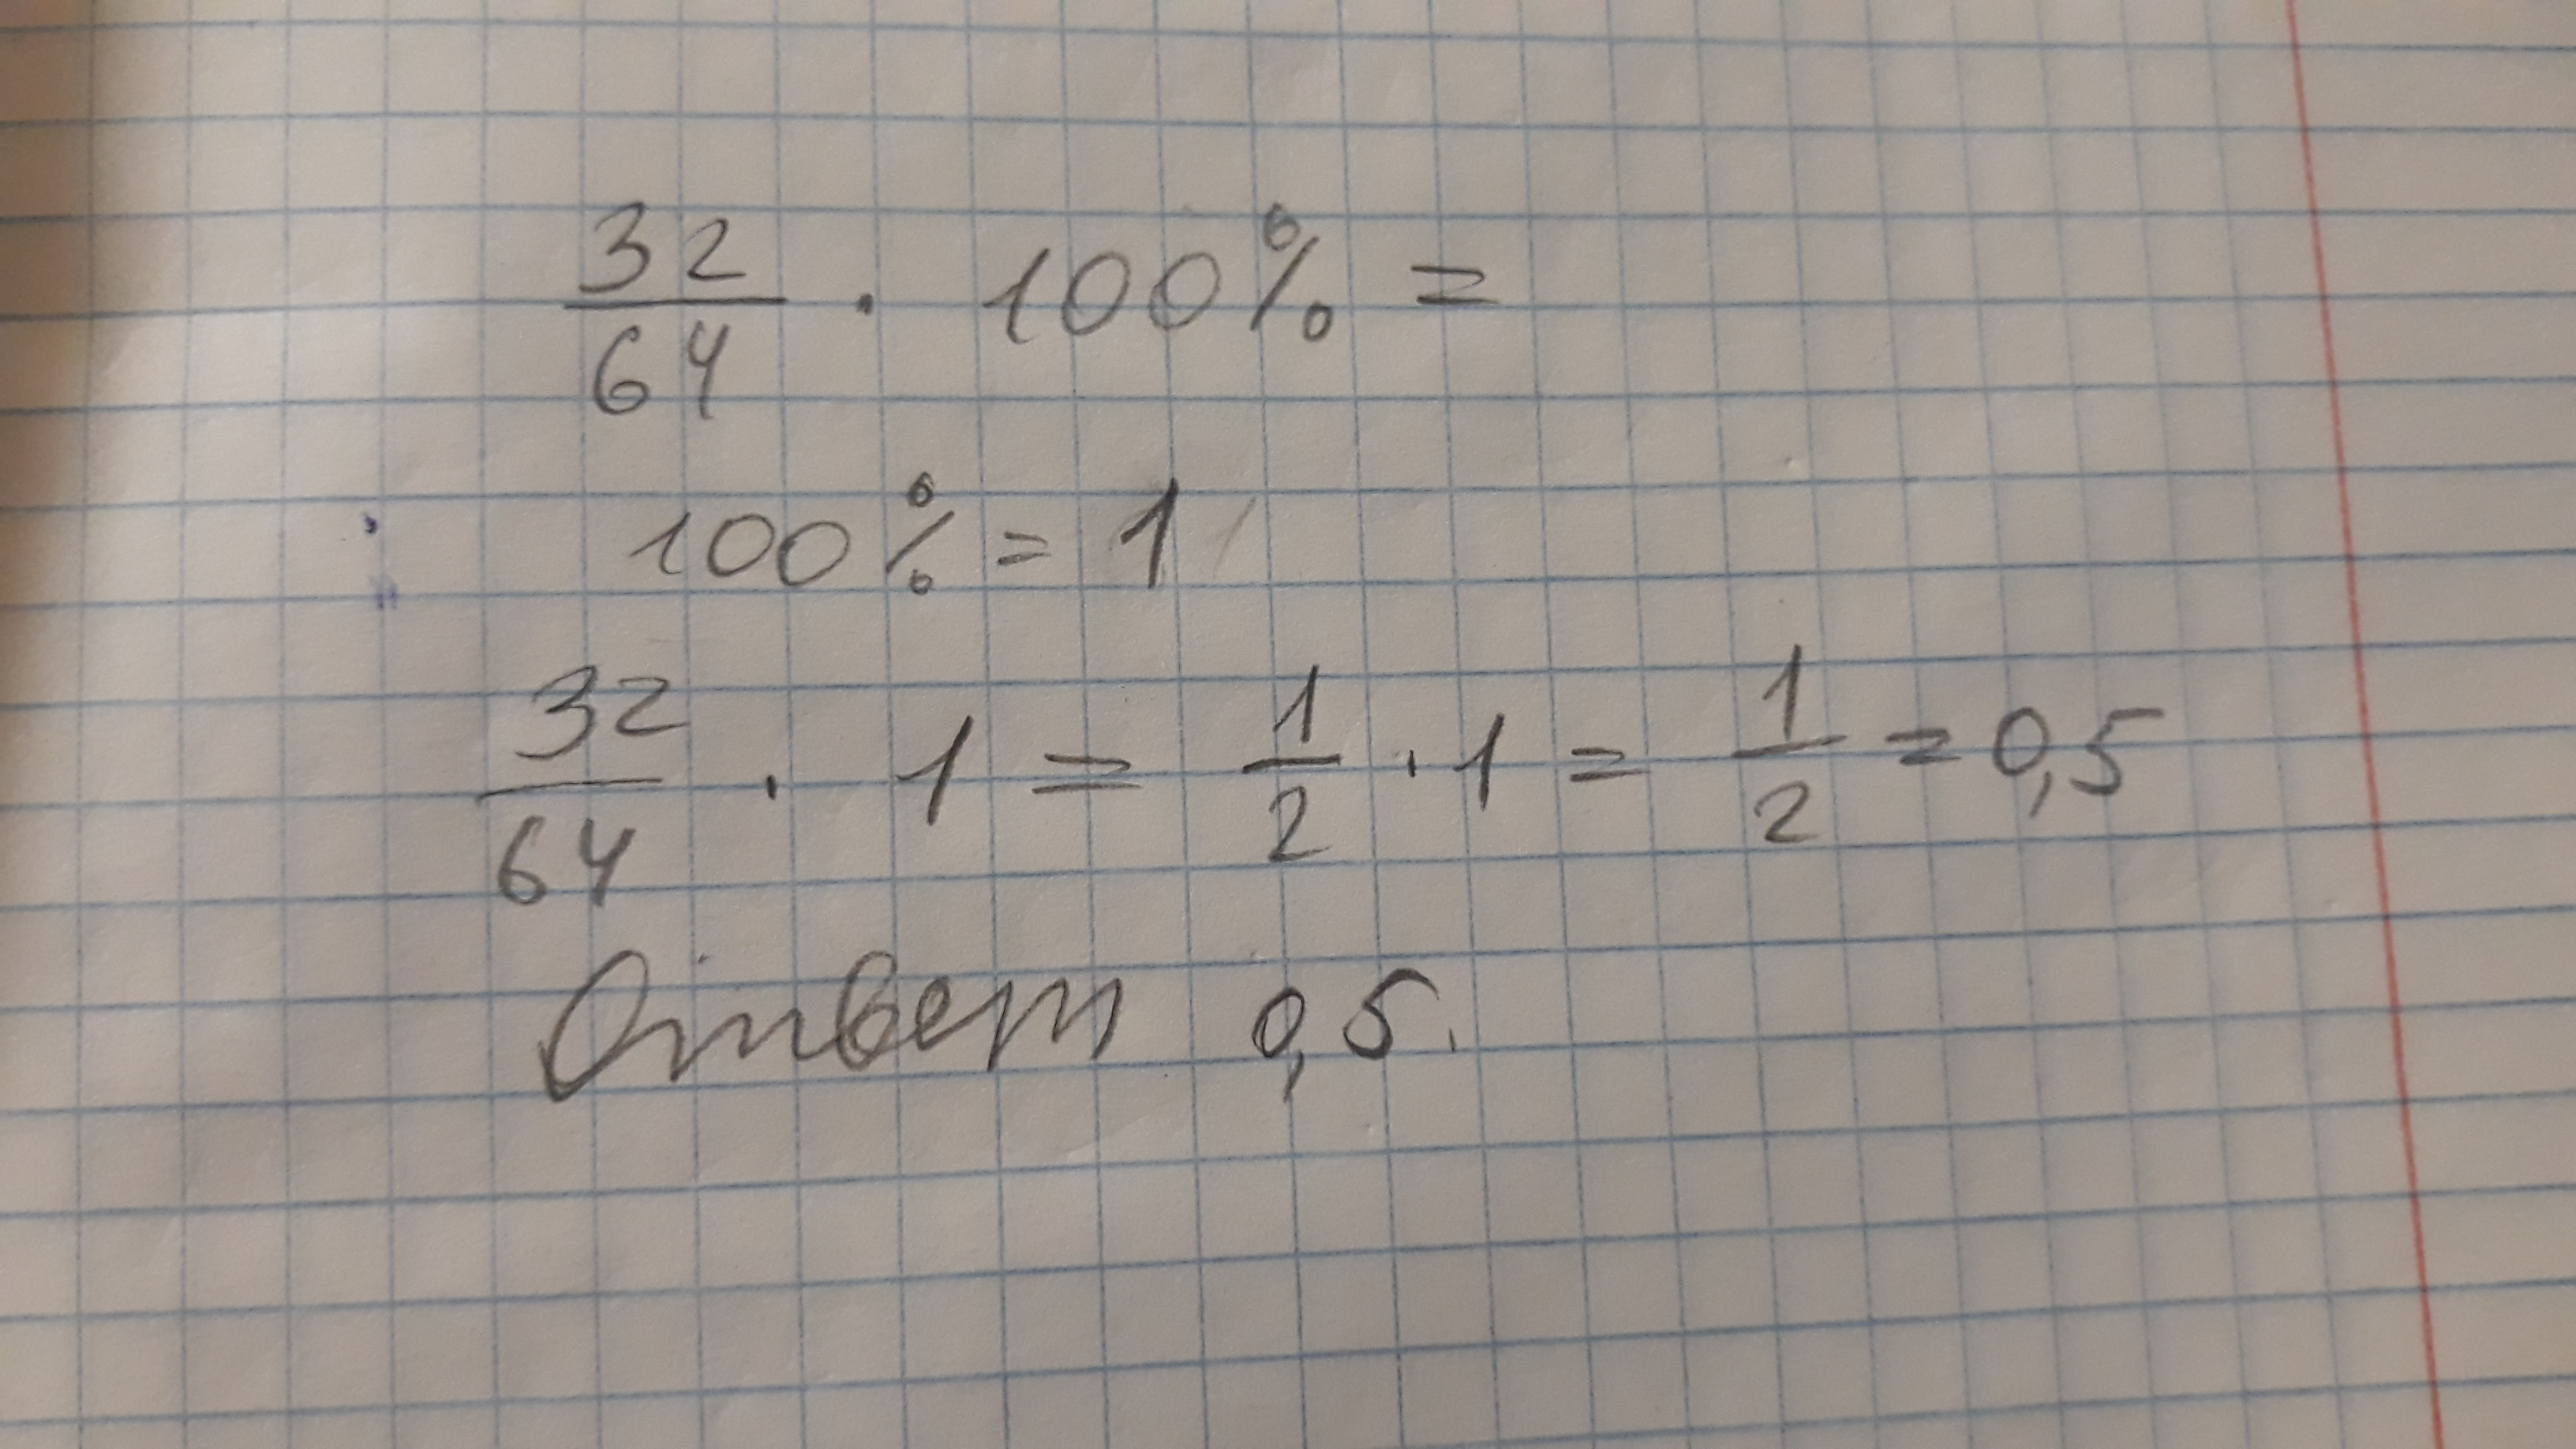 32/64 · 100% =
100% = 1
32/64 · 1 = 1/2 · 1 = 1/2 = 0,5
Ответ 0,5.